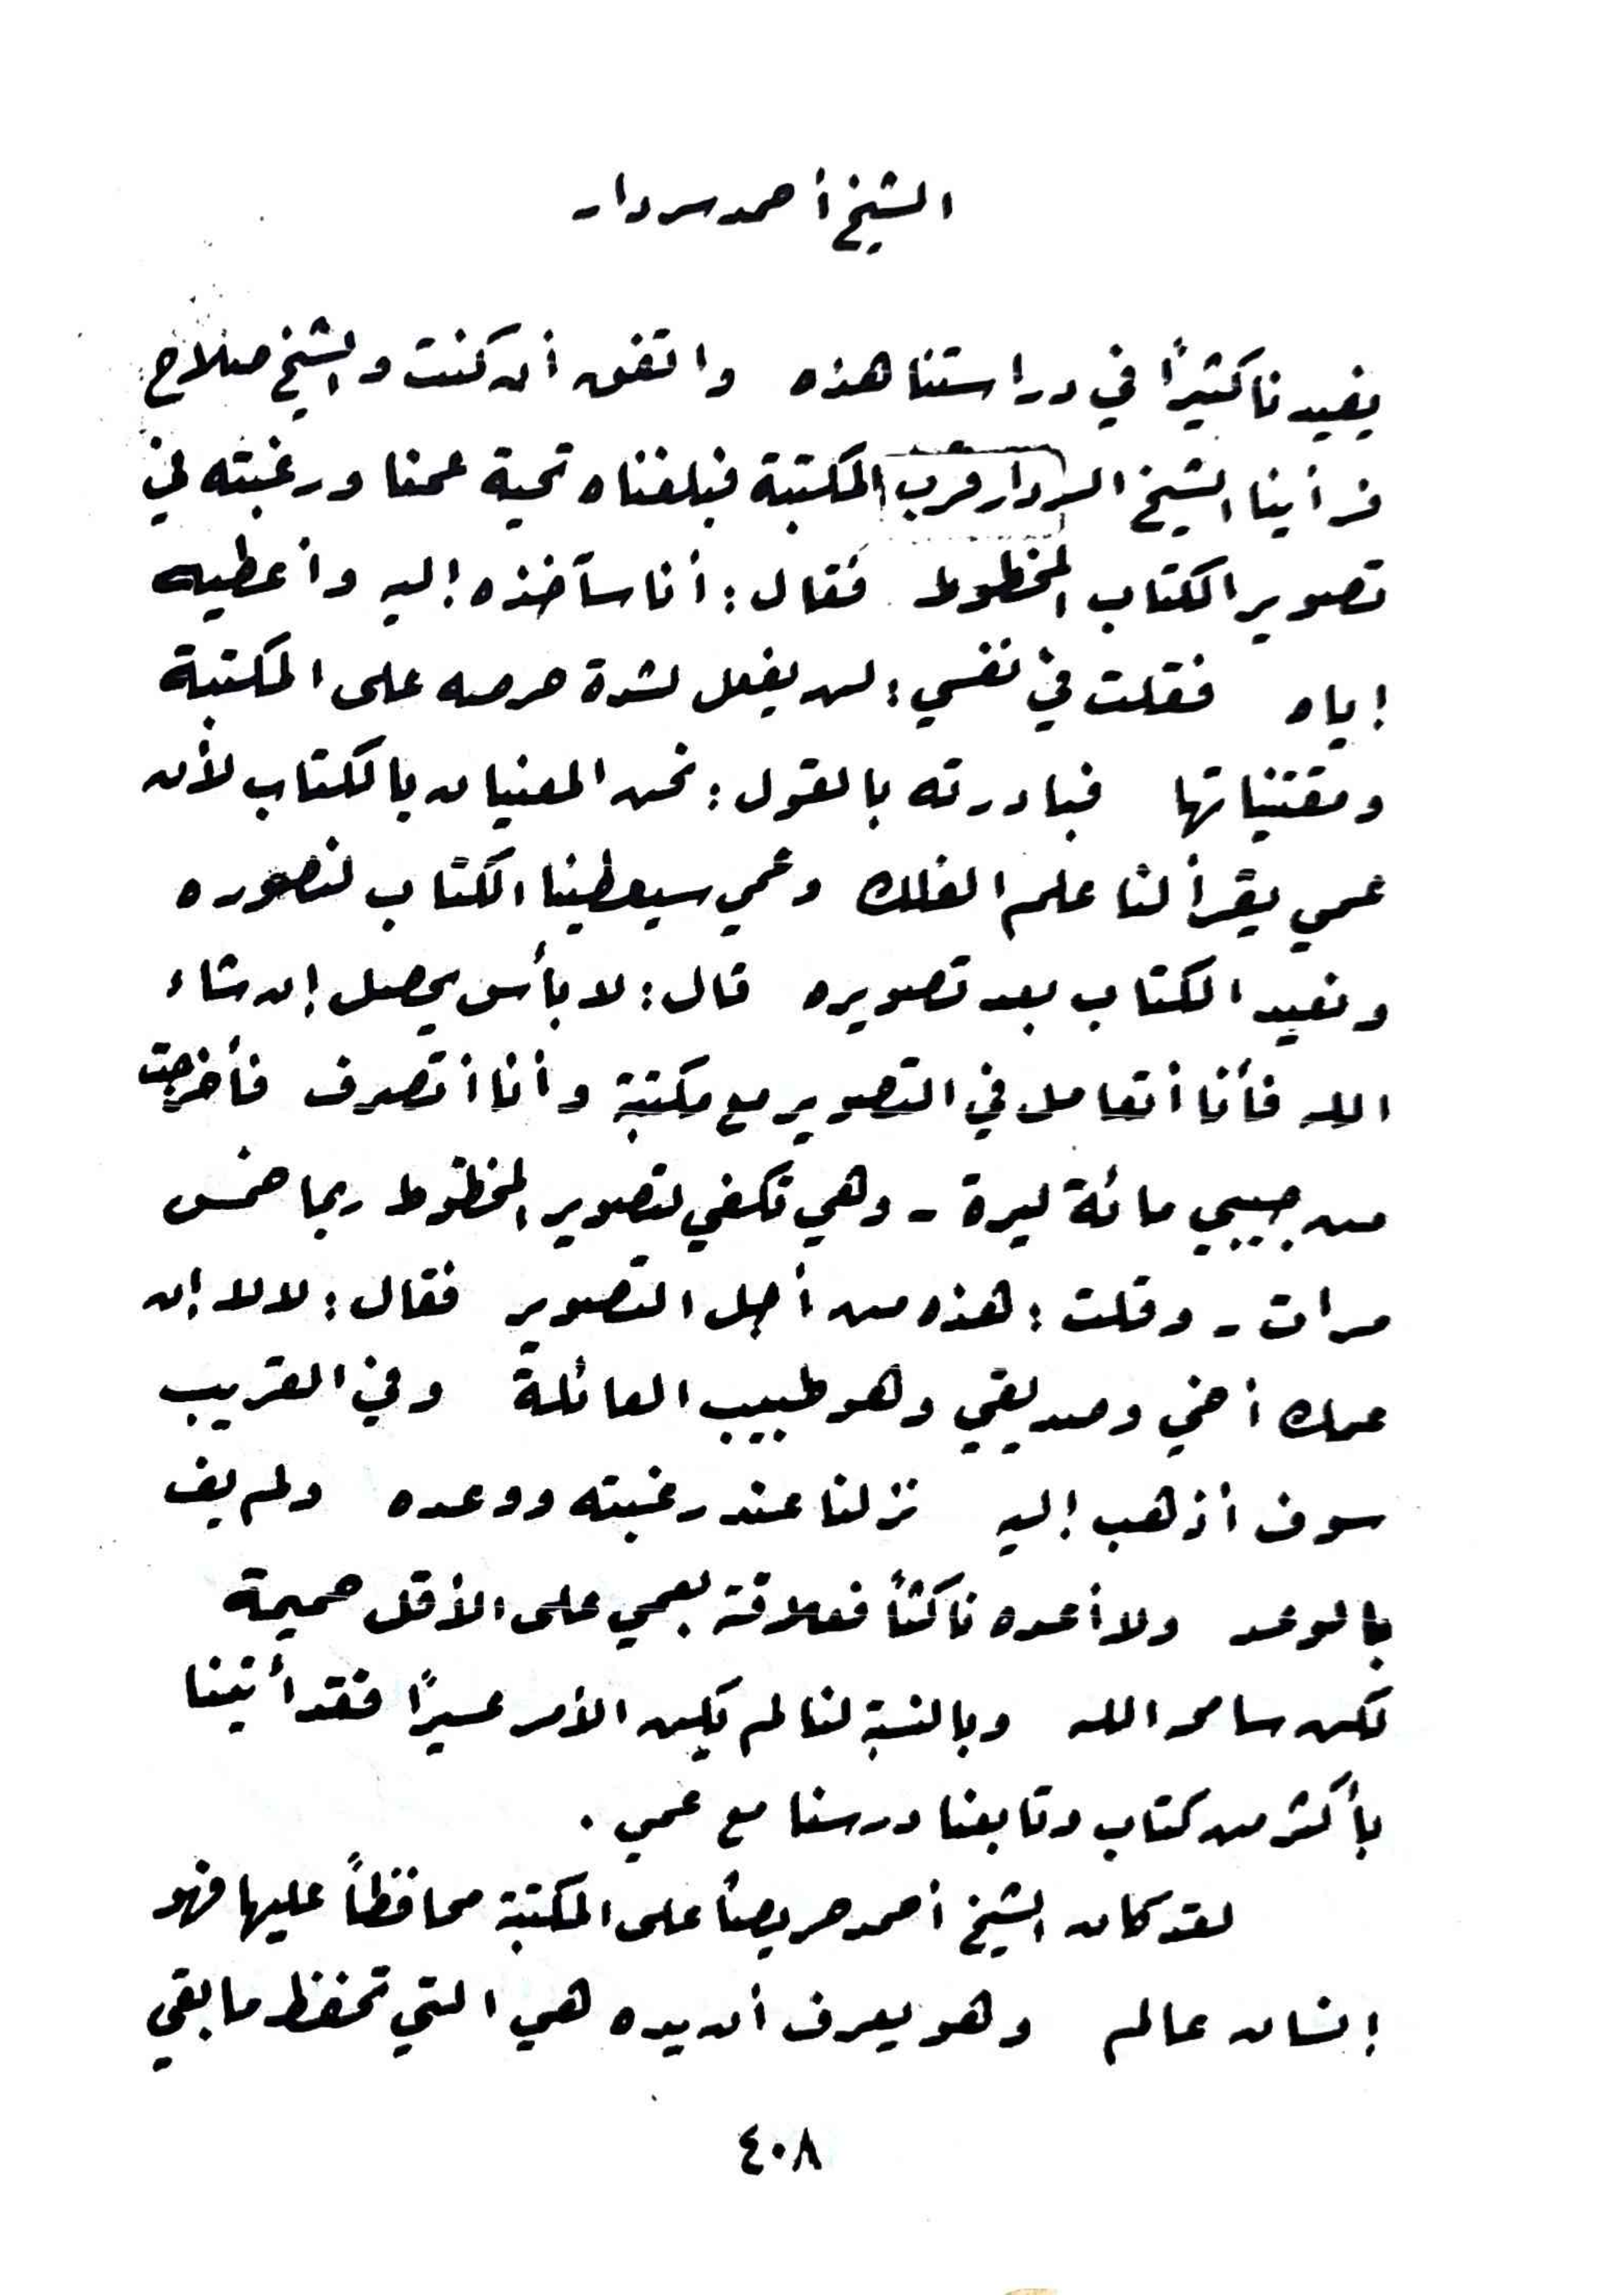 الشيخ أحمد سردار
يفيدنا كثيرًا في دراستنا هذه واتفق أن كنت والشيخ صلاح
فرأينا الشيخ السردار قرب المكتبة فبلغناه تحية عمنا ورغبته في
تصوير الكتاب المخطوط فقال: أنا سآخذه إليه وأعطيه
إياه فقلت في نفسي: لن يفعل لشدة حرصه على المكتبة
ومقتنياتها فبادرته بالقول: نحن المعنيان بالكتاب لأن
عمي يقرأ لنا علم الفلك وعمي سيعطينا الكتاب لنصوره
ونعيد الكتاب بعد تصويره قال: لا بأس يحصل إن شاء
الله فأنا أتعامل في التصوير مع مكتبة وأنا أتصرف فأخرجت
من جيبي مائة ليرة - وهي تكفي لتصوير المخطوط ربما خمس
مرات - وقلت: هذه من أجل التصوير فقال: لا لا إن
عمك أخي وصديقي وهو طبيب العائلة وفي القريب
سوف أذهب إليه نزلنا عند رغبته ووعده ولم يف
بالوعد ولا أعده ناكثاً فعلاقته بعمي على الأقل حميمة
لكن سامحه الله وبالنسبة لنا لم يكن الأمر عسيرًا فقد أتينا
بأكثر من كتاب وتابعنا درسنا مع عمي .
لقد كان الشيخ أحمد حريصاً على المكتبة محافظاً عليها فهو
إنسان عالم وهو يعرف أن يده هي التي تحفظ ما بقي
٤٠٨